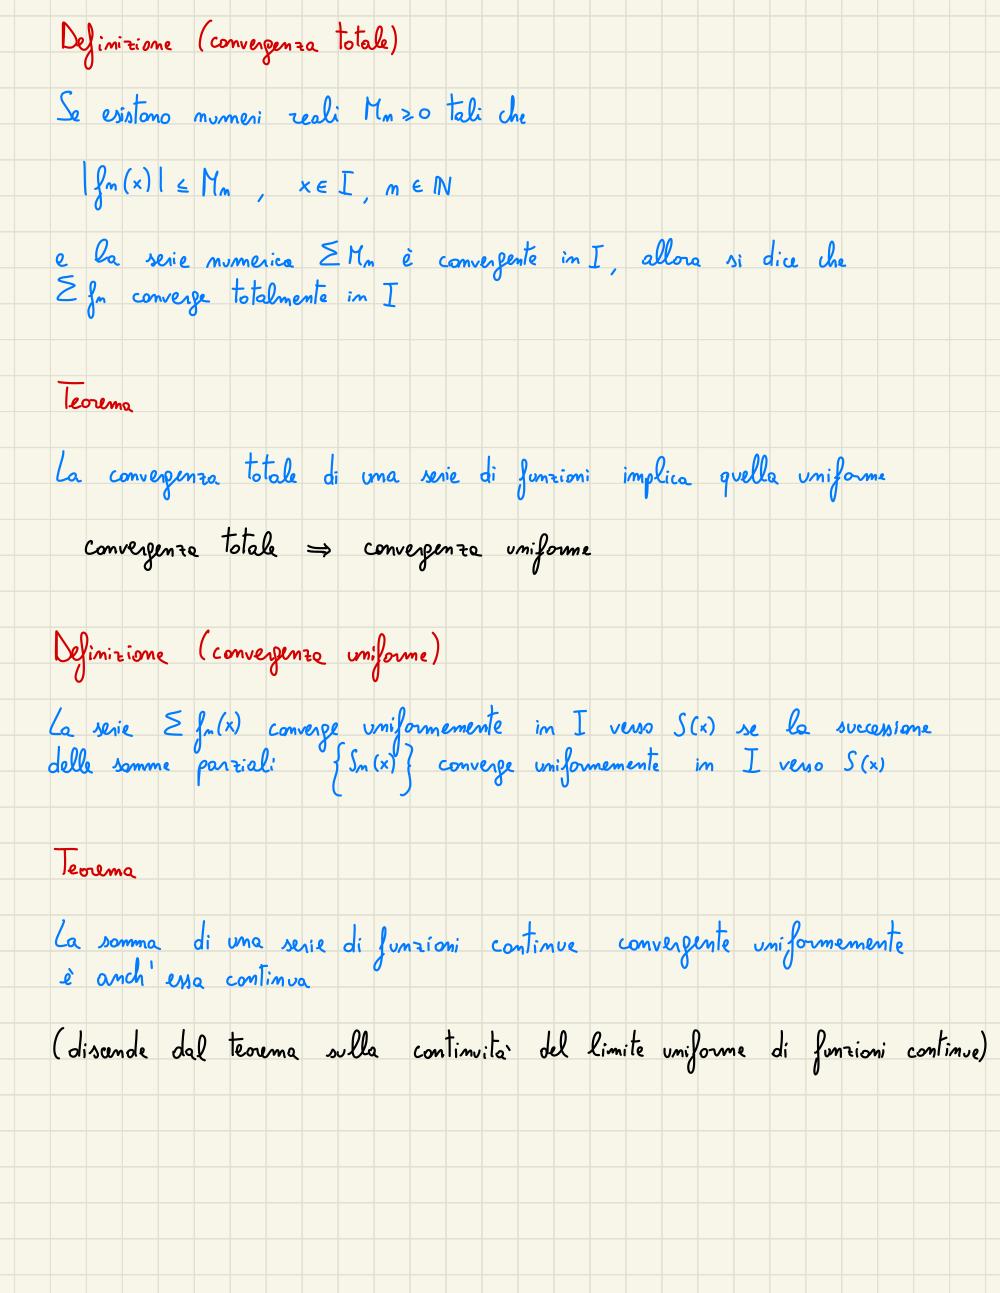 Definizione (convergenza totale)
Se esistono numeri reali Mn ≥ 0 tali che
|fn(x)| ≤ Mn , x ∈ I, n ∈ ℕ
e la serie numerica Σ Mn è convergente in I, allora si dice che
Σ fn converge totalmente in I
Teorema
La convergenza totale di una serie di funzioni implica quella uniforme
convergenza totale ⇒ convergenza uniforme
Definizione (convergenza uniforme)
La serie Σ fn(x) converge uniformemente in I verso S(x) se la successione
delle somme parziali {Sn(x)} converge uniformemente in I verso S(x)
Teorema
La somma di una serie di funzioni continue convergente uniformemente
è anch'essa continua
(discende dal teorema sulla continuità del limite uniforme di funzioni continue)